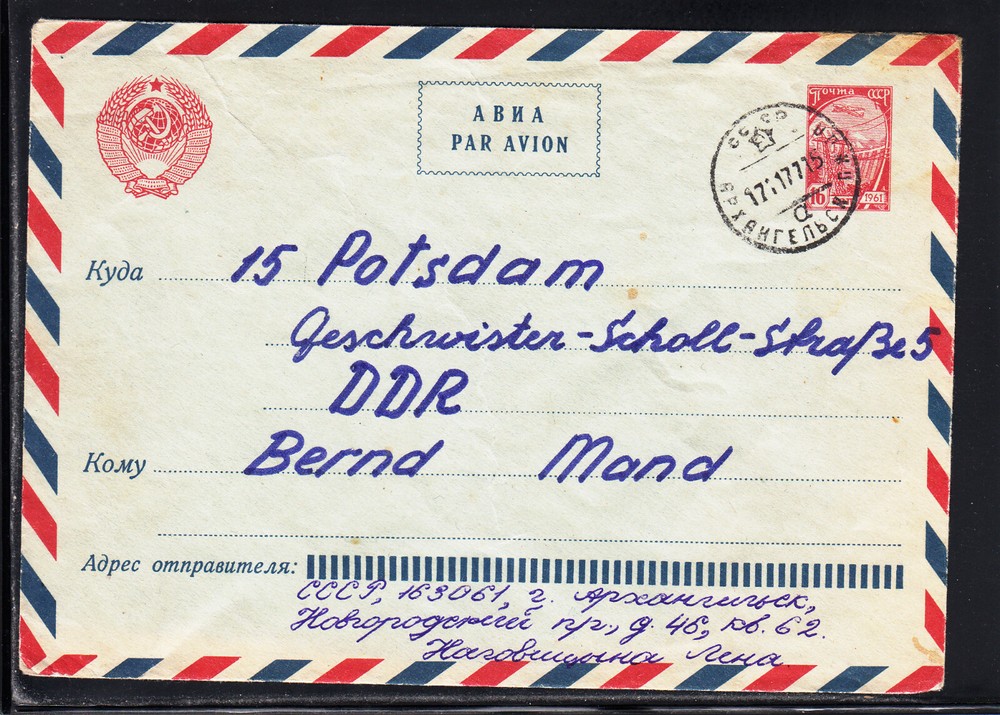 АВИА
PAR AVION
Почта СССР
16
1961
АРХАНГЕЛЬСК
Куда 15 Potsdam
Geschwister-Scholl-Straße 5
DDR
Кому Bernd Mand
Адрес отправителя:
СССР, 163061, г. Архангильск,
Новгородский пр., д. 46, кв. 62.
Наговицына Лена